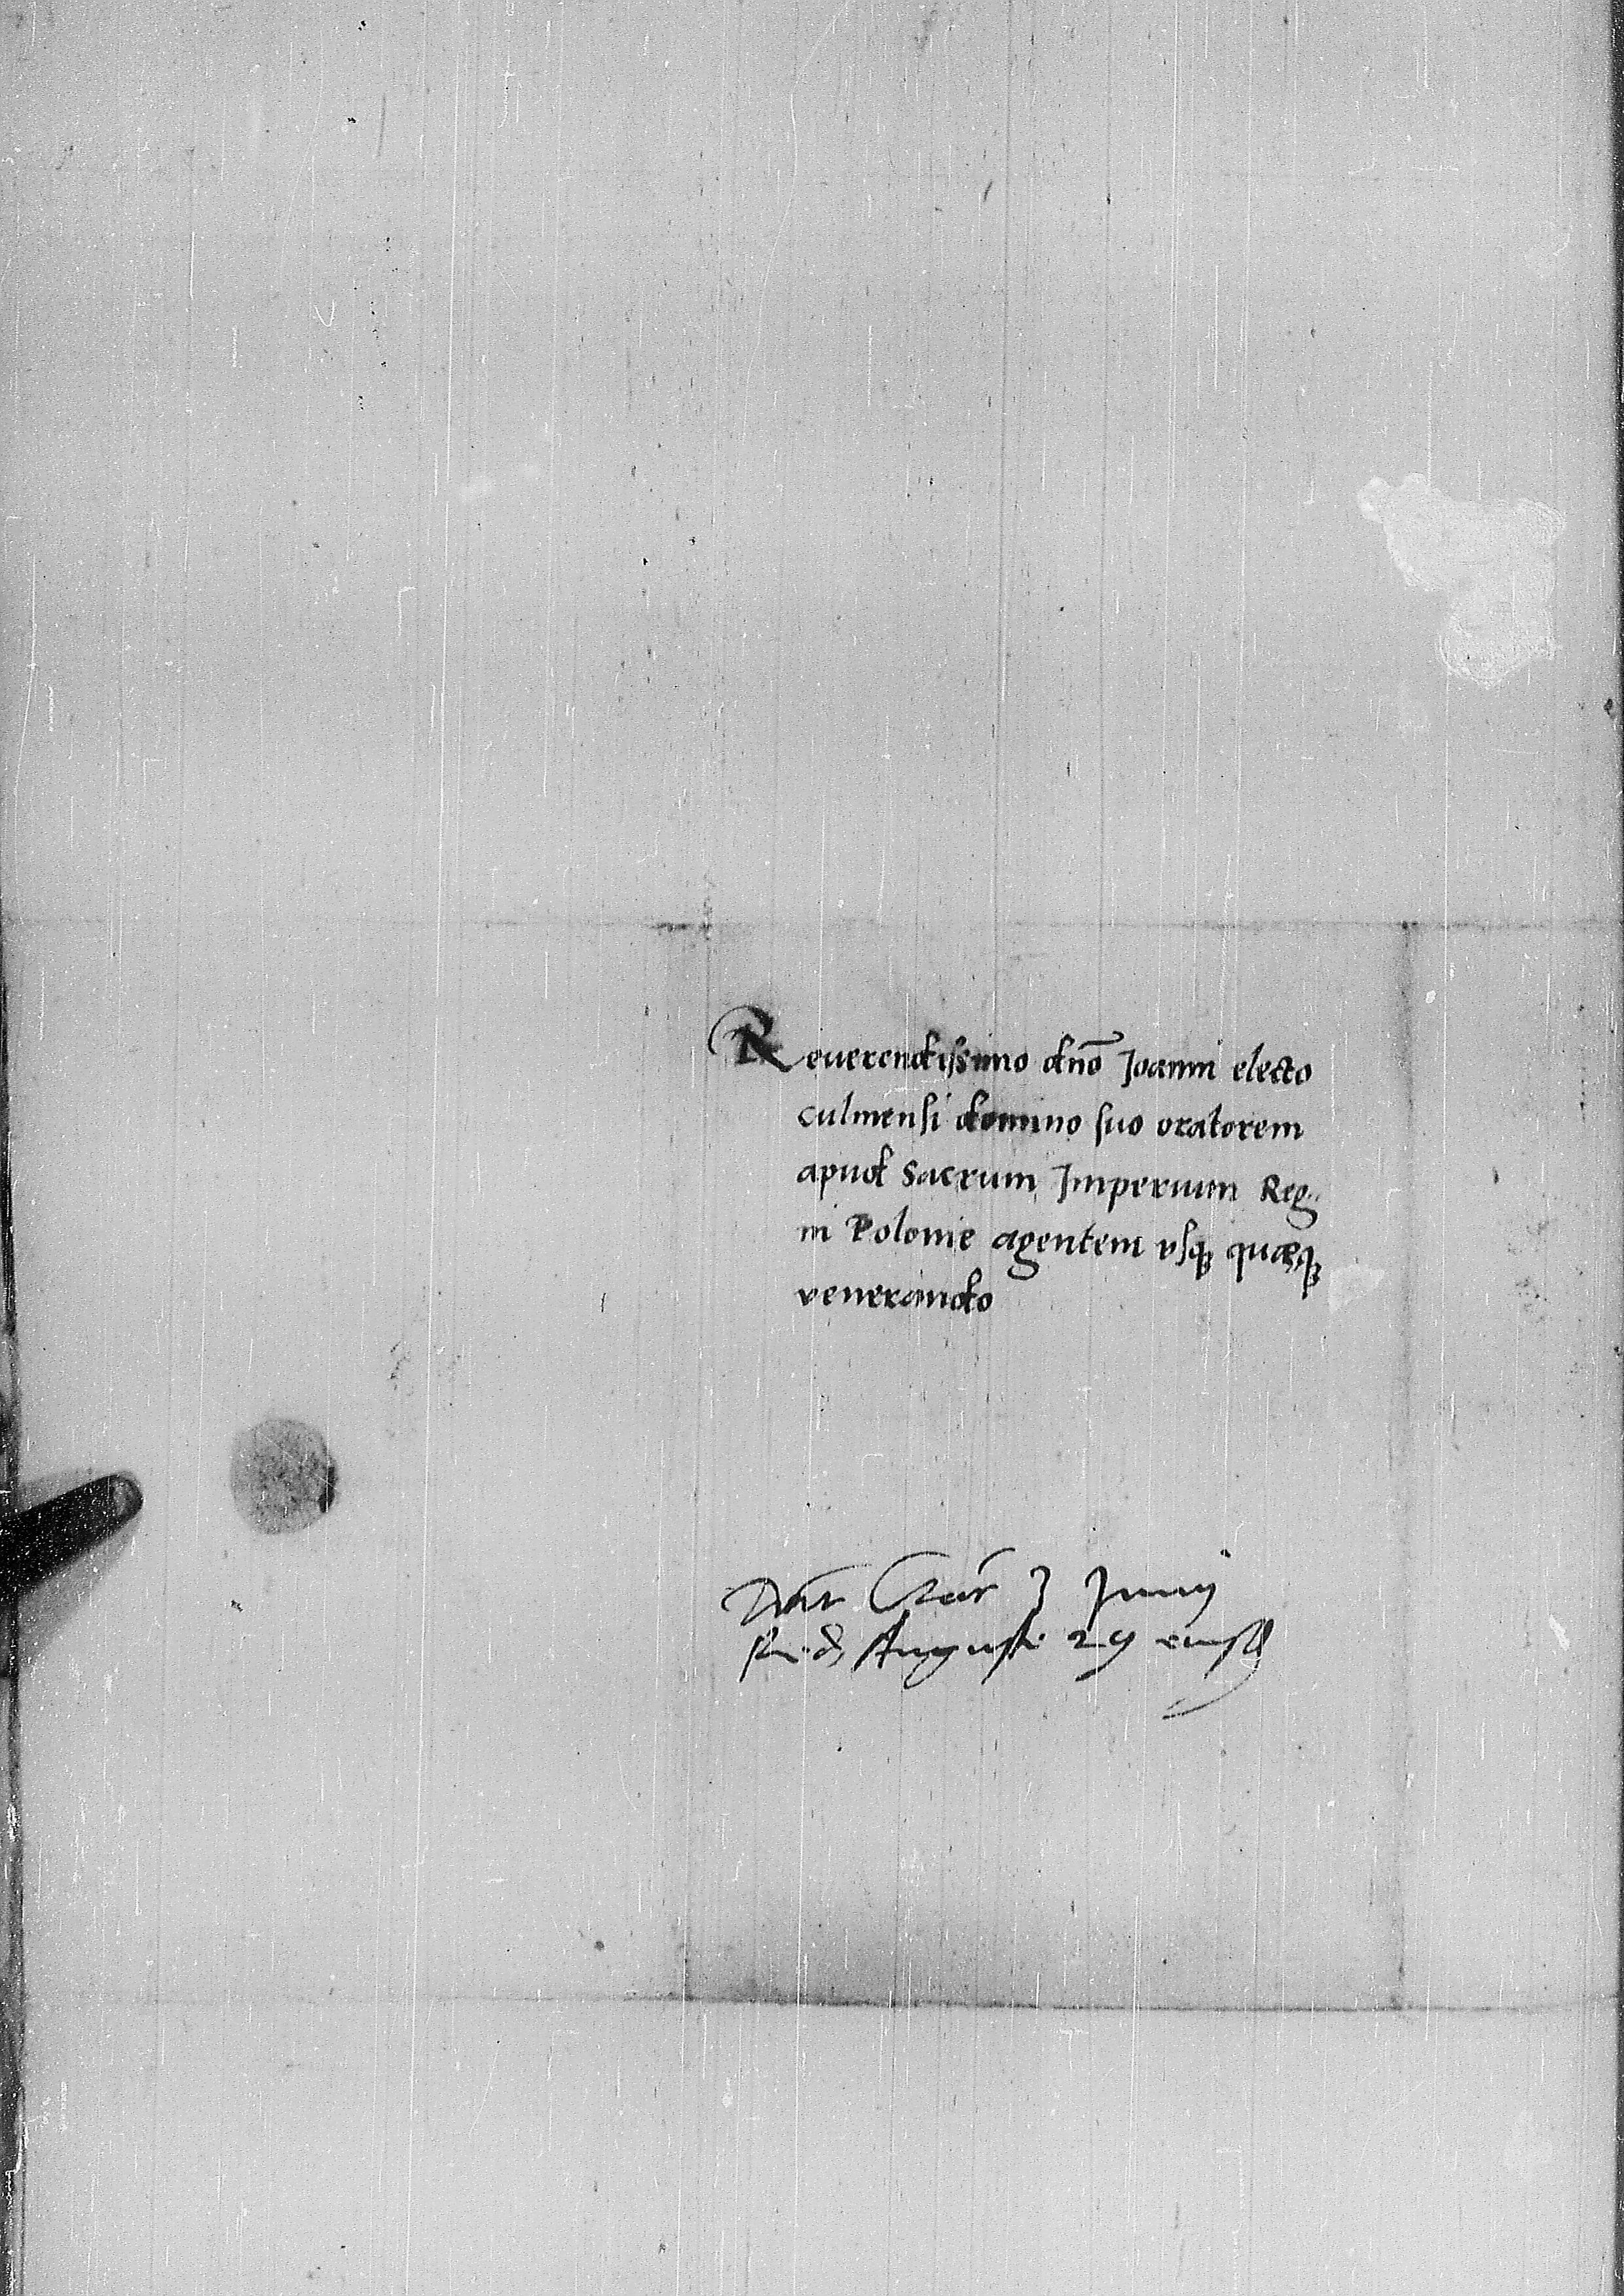 Reuerendissimo dno̅ Joanni electo
culmensi domino suo oratorem
apud Sacrum Imperium Reg-
ni Polonie agentem vsqꝫ quaqꝫ
venerando
Dat 3 Junij
Augusti 29